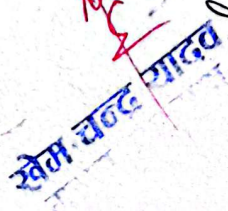 खेम चन्द यादव